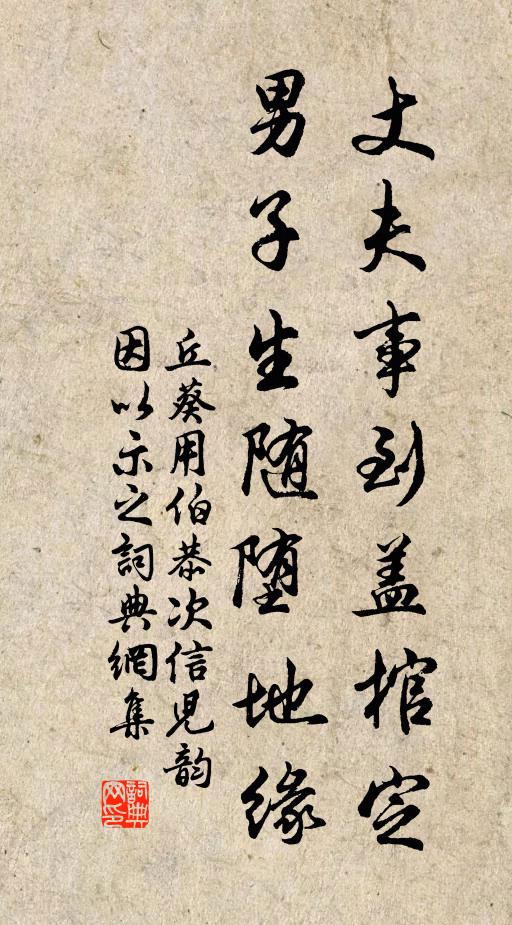 丈夫事到盖棺定
男子生随堕地缘
丘葵用伯恭次信児韵
因以示之詞典網集
詞典网印